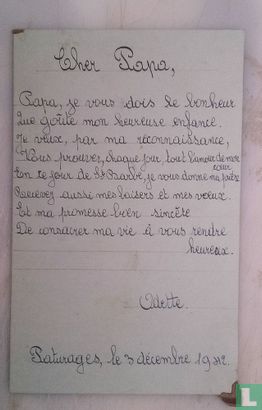 Cher Papa,
Papa, je vous dois le bonheur
Que goûte mon heureuse enfance.
Je veux, par ma reconnaissance,
Vous prouver, chaque jour tout l'amour de mon
cœur
En ce jour de St Barbe, je vous donne ma prière
Recevez aussi mes baisers et mes voeux.
Et ma promesse bien sincère
De consacrer ma vie à vous rendre
heureux.
Odette.
Pâturages, le 3 décembre 19
catawiki